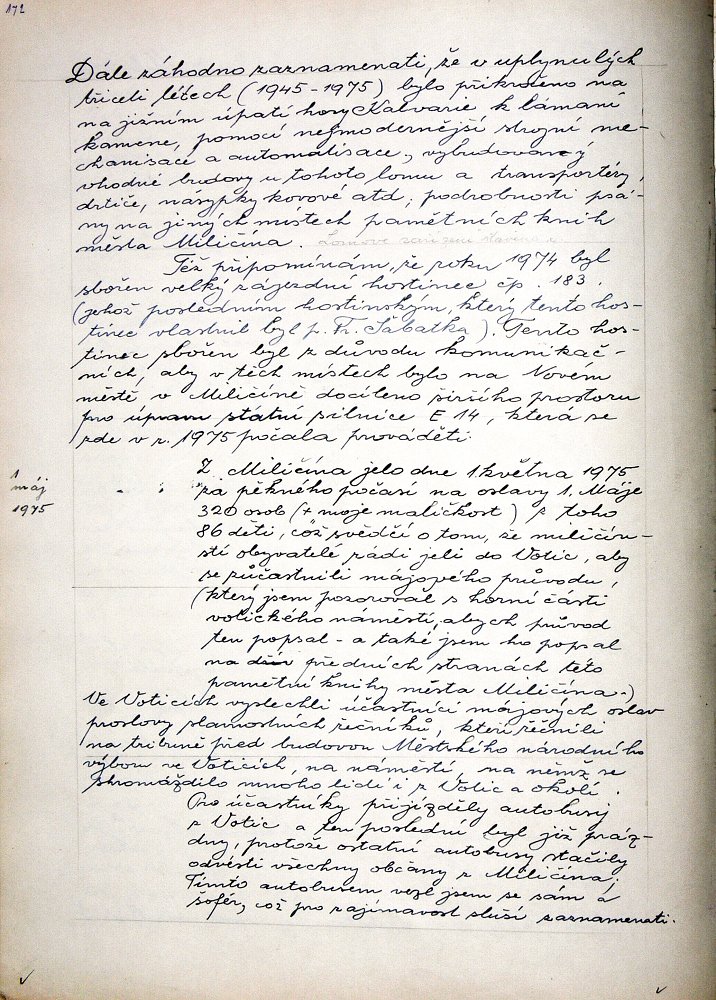 172
Dále záhodno zaznamenati, že v uplynulých
třiceti létech (1945-1975) bylo přikročeno na
na jižním úpatí hory Kalvarie k lámání
kamene, pomocí nejmodernější strojní me-
chanisace a automatisace, vybudovaný
vhodné budovy u tohoto lomu a transportéry,
drtiče, násypky kovové atd, podrobnosti psá-
ny na jiných místech pamětních knih
města Miličína.
Též připomínám, že roku 1974 byl
sbořen velký zájezdní hostinec čp. 183.
(jehož posledním hostinským, který tento hos-
tinec vlastnil byl p. Fr. Sábatka). Tento hos-
tinec sbořen byl z důvodu komunikač-
ních, aby v těch místech bylo na Novém
městě v Miličíně docíleno širšího prostoru
pro úpravu státní silnice E 14, která se
zde v r. 1975 počala prováděti.
1
máj
1975
Z Miličína jelo dne 1. května 1975
za pěkného počasí na oslavy 1. Máje
320 osob (+ moje maličkost) z toho
86 dětí, což svědčí o tom, že miličín-
stí obyvatelé rádi jeli do Votic, aby
se zúčastnili májového průvodu,
(který jsem pozoroval s horní části
votického náměstí, abych průvod
ten popsal - a také jsem ho popsal
na předních stranách této
pamětní knihy města Miličína.)
Ve Voticích vyslechli účastníci májových oslav
proslovy slavnostních řečníků, kteří řečnili
na tribuně před budovou Městského národního
výboru ve Voticích, na náměstí, na němž se
shromáždilo mnoho lidí i z Votic a okolí.
Pro účastníky přijížděly autobusy
z Votic a ten poslední byl již práz-
dný, protože ostatní autobusy stačily
odvésti všechny občany z Miličína;
Tímto autobusem vezl jsem se sám a
šofér, což pro zajímavost sluší zaznamenati.